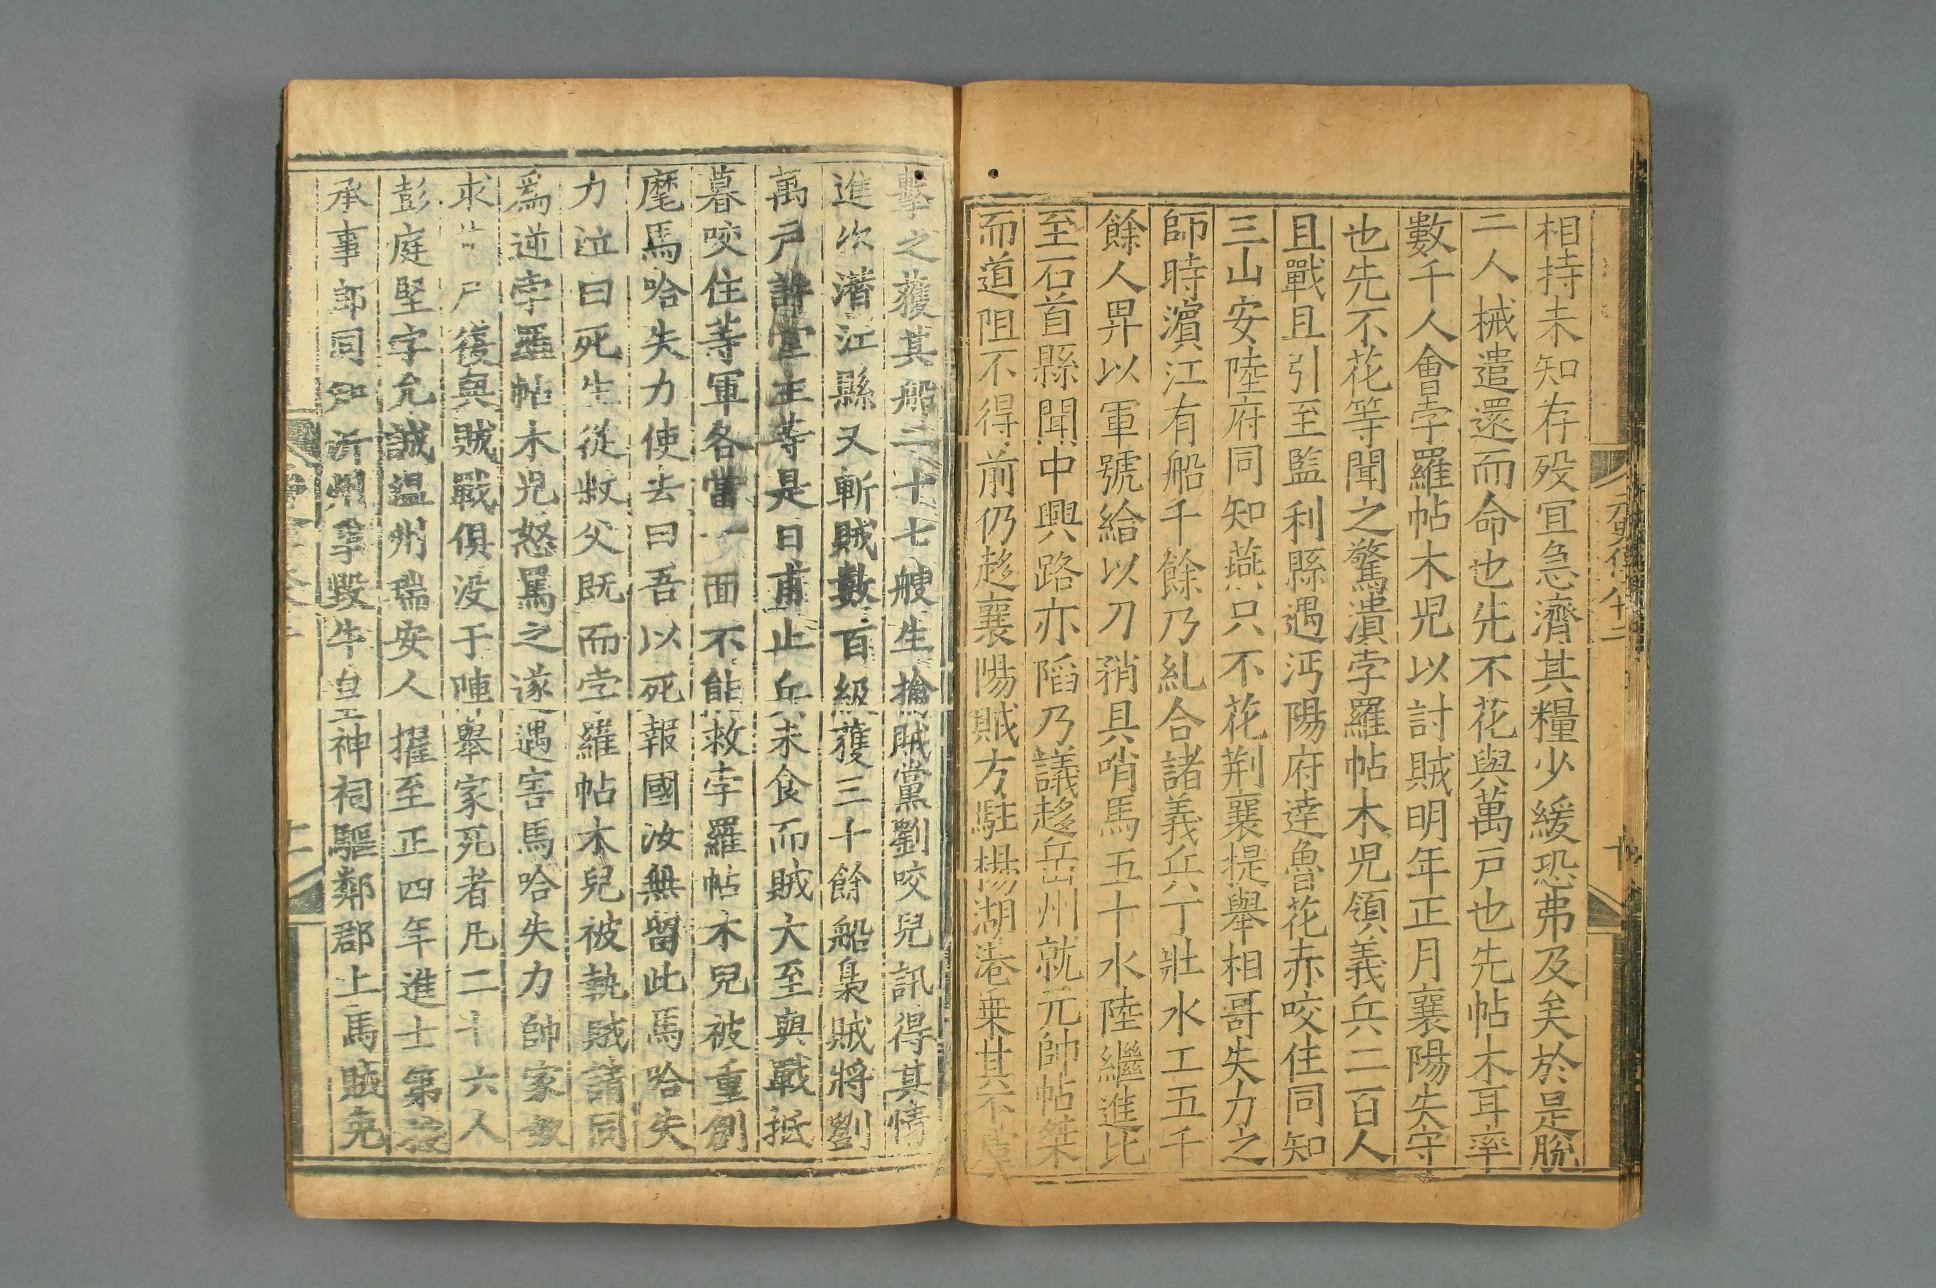 相持未知存歿宜急濟其糧少緩恐弗及矣於是脫
二人械遣還而命也先不花與萬戶也先帖木耳率
數千人會孛羅帖木児以討賊明年正月襄陽失守
也先不花等聞之驚潰孛羅帖木児領義兵二百人
且戰且引至監利縣遇沔陽府達魯花赤咬住同知
三山安陸府同知燕只不花荆襄提舉相哥失力之
師時濵江有船千餘乃糺合諸義兵丁壯水工五千
餘人畀以軍號給以刀矟具哨馬五十水陸繼進比
至石首縣聞中興路亦陷乃議趍岳州就元帥帖桀
而道阻不得前仍趍襄陽賊方駐楊湖港乗其不
元史傳八十二
十
擊之獲其船二十七艘生擒賊黨劉咬兒訊得其情
進次潜江縣又斬賊數百級獲三十餘船梟賊將劉
萬戶許堂主等是日甫止兵未食而賊大至與戰抵
暮咬住等軍各當一面不能救孛羅帖木兒被重創
麾馬哈失力使去曰吾以死報國汝無留此馬哈失
力泣曰死生從叔父既而孛羅帖木兒被執賊請同
爲逆孛羅帖木児怒罵之遂遇害馬哈失力帥家奴
求尸復與賊戰俱没于陣舉家死者凡二十六人
彭庭堅字允誠温州瑞安人擢至正四年進士第授
承事郎同知沂州事毀牛皇神祠驅鄰郡上馬賊免
十一